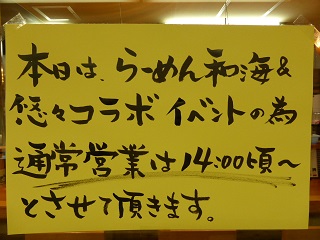 本日は、らーめん和海&
悠々コラボイベントの為
通常営業は14:00頃〜
とさせて頂きます。